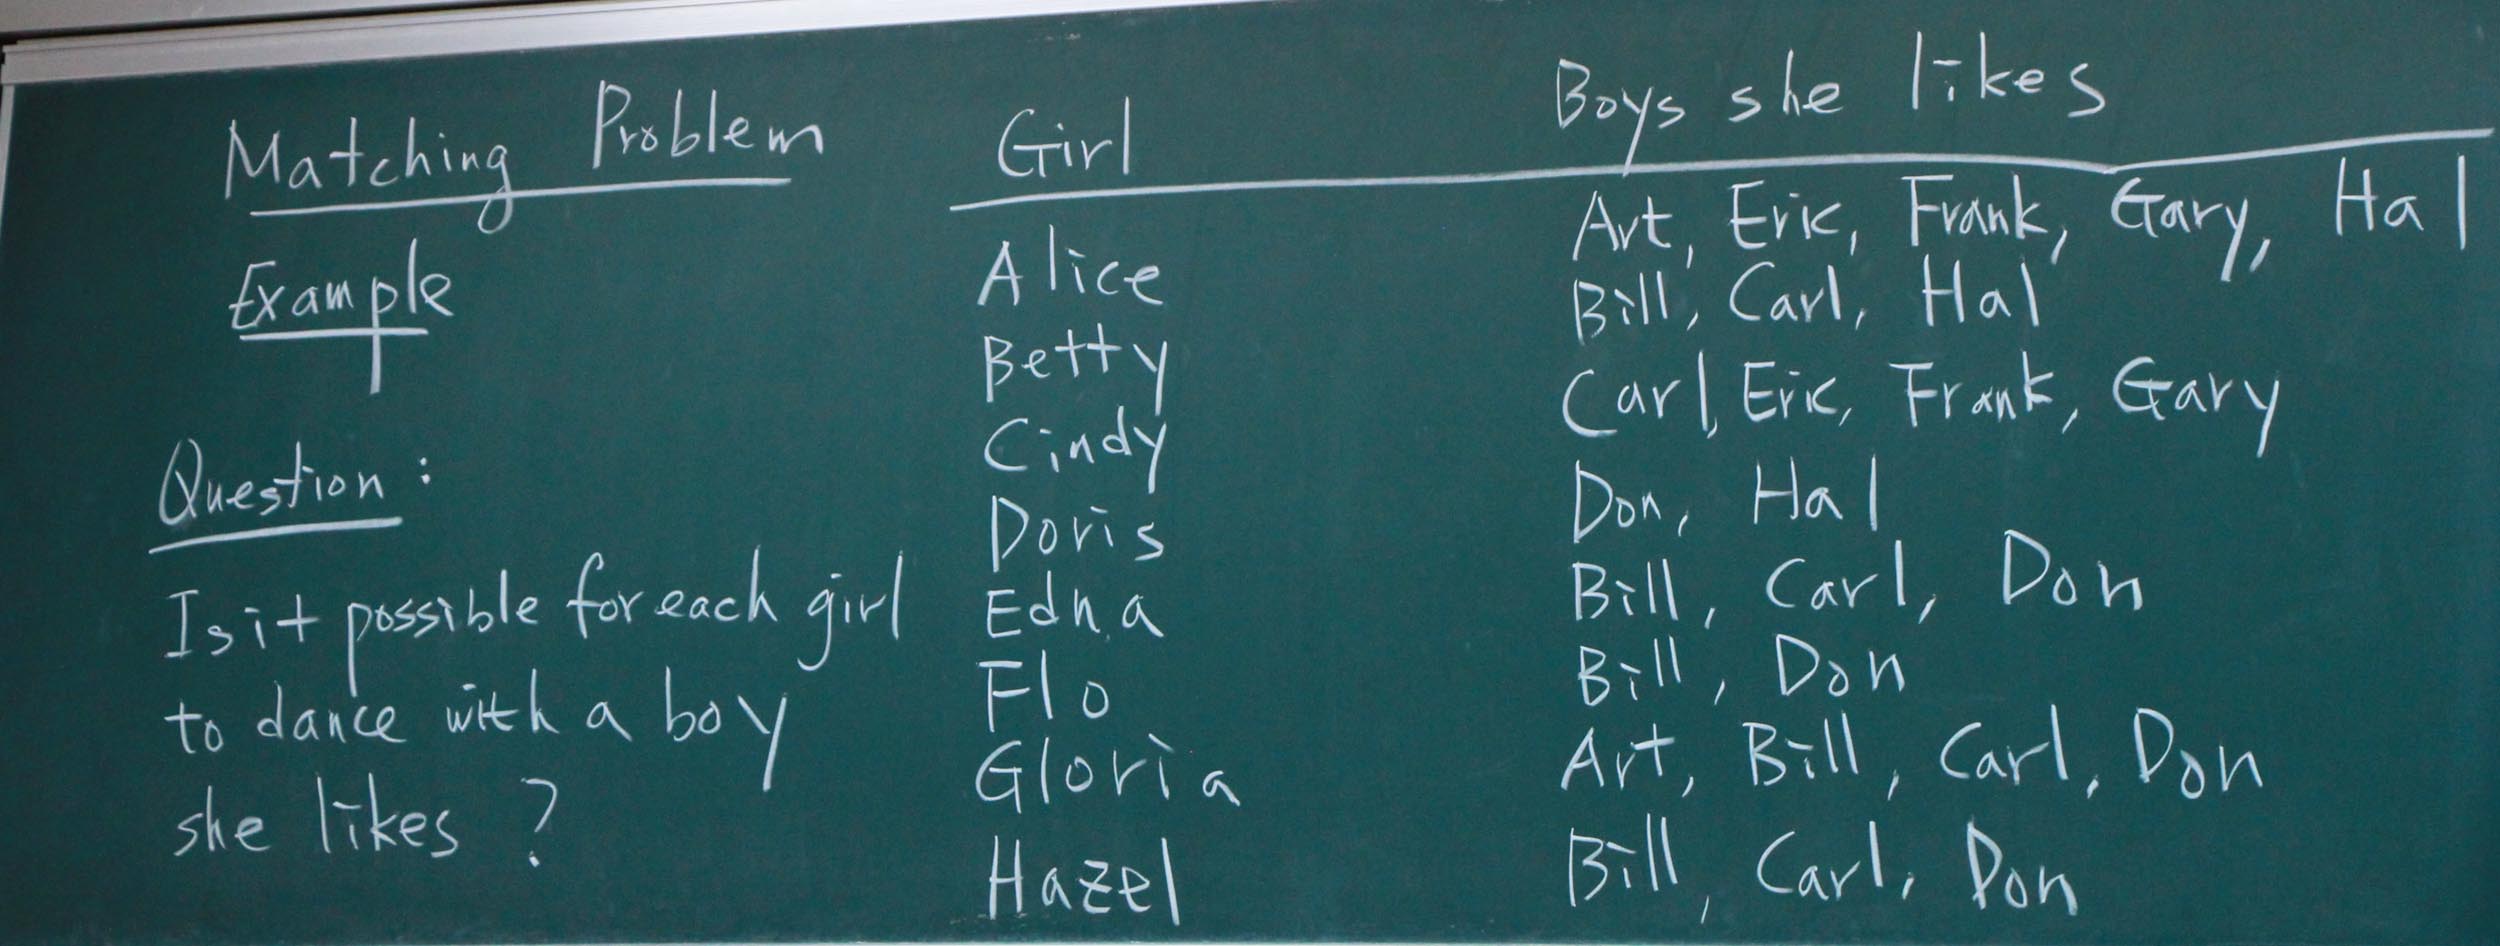 Matching Problem
Example
Question:
Is it possible for each girl
to dance with a boy
she likes?
Girl Boys she likes
Alice Art, Eric, Frank, Gary, Hal
Betty Bill, Carl, Hal
Cindy Carl, Eric, Frank, Gary
Doris Don, Hal
Edna Bill, Carl, Don
Flo Bill, Don
Gloria Art, Bill, Carl, Don
Hazel Bill, Carl, Don